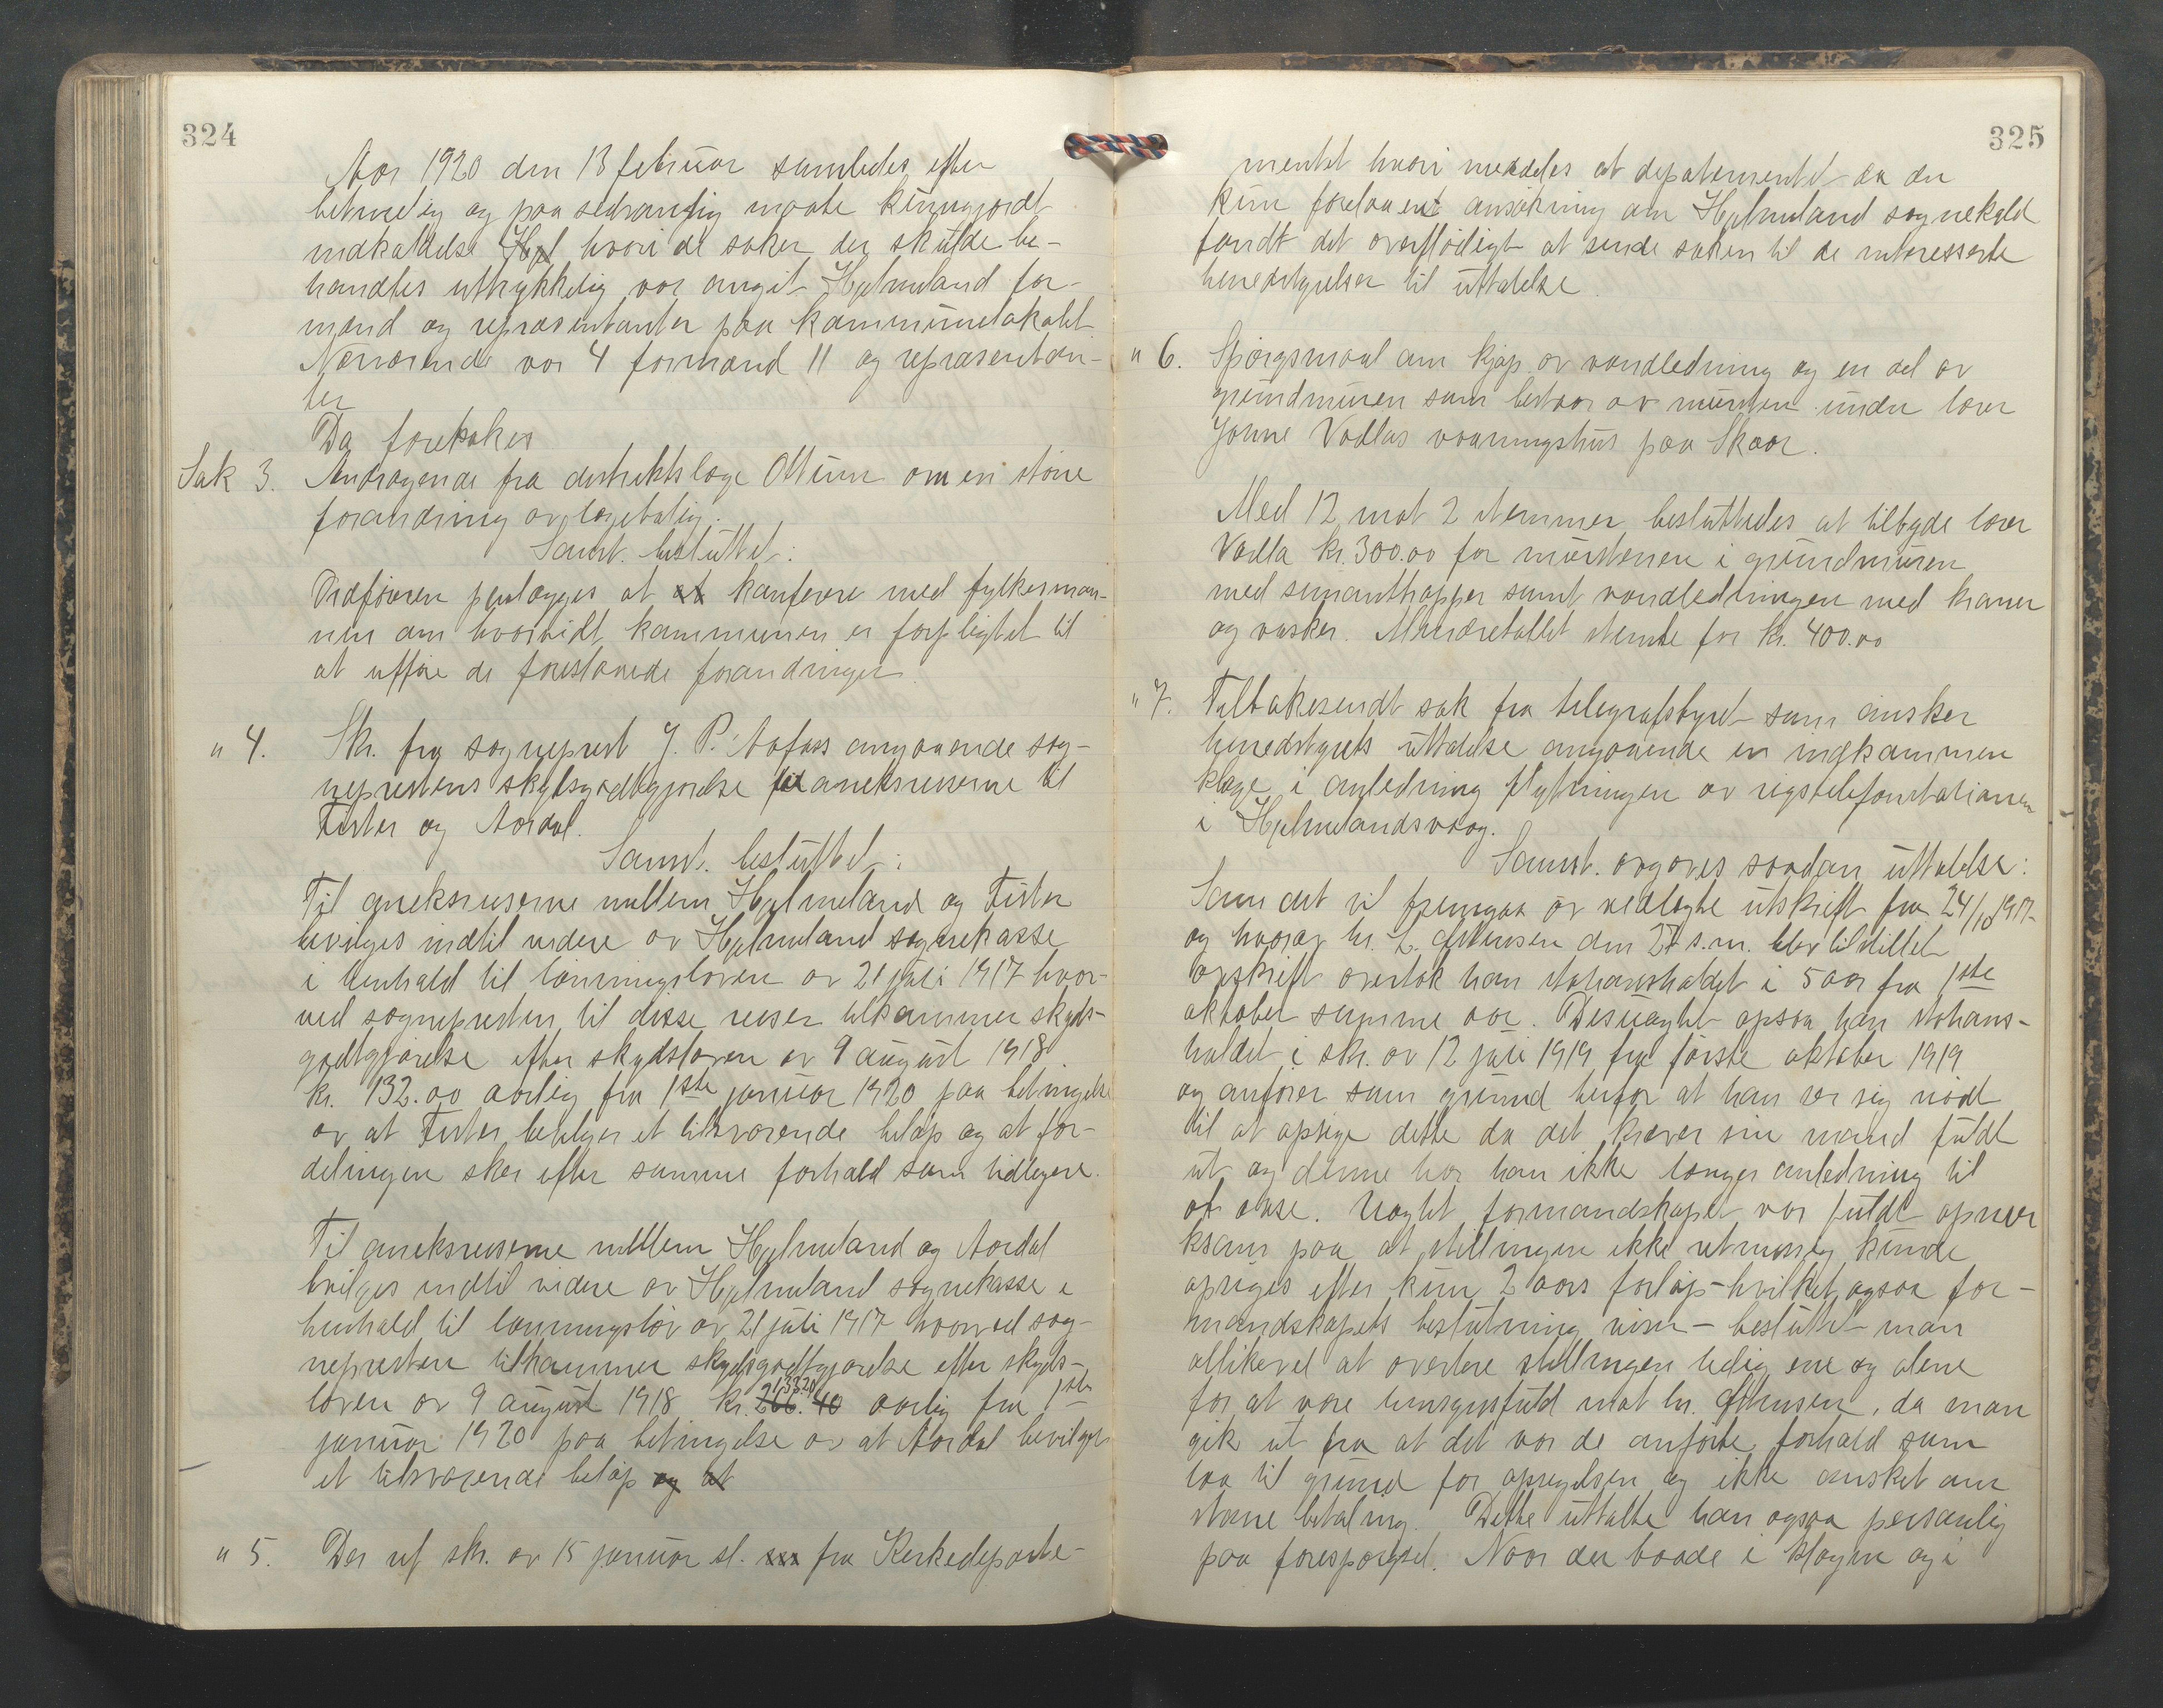 324
Aar 1920 den 13 februar samledes efter
betimelig og paa sedvanlig maate kunngjordt
indkaldelse Hjel hvori de saker der skulde be-
handles uttrykkelig var angit Hjelmeland for-
mænd og repræsentanter paa kommunelokalet
Nærværende var 4 formænd 11 og repræsentan-
ter
Da forekokes
Sak 3. Andragende fra distriktslæge Ottum om en større
forandring av lægebolig.
Samst. besluttet:
Ordføreren paalægges at at konferere med fylkesman-
nen om hvorvidt kommunen er forpligtet til
at utføre de foreslaaede forandringer.
" 4. Skr. fra sogneprest J. P. Aafoss angaaende sog-
neprestens skydsgodtgjørelse til aneksreiserne til
Fister og Aardal.
Samst. besluttet:
Til aneksreiserne mellem Hjelmeland og Fister
bevilges indtil videre av Hjelmeland sognekasse
i henhold til lønningsloven av 21 juli 1917 hvor-
ved sognepresten til disse reiser tilkommer skyds-
godtgjørelse efter skydsloven av 9 august 1918
kr. 132.00 aarlig fra 1ste januar 1920 paa betingelse
av at Fister bevilger et tilsvarende beløp og at for-
delingen sker efter samme forhold som tidligere.
Til aneksreiserne mellem Hjelmeland og Aardal
bvilges indtil videre av Hjelmeland sognekasse i
henhold til lønningslov av 21 juli 1917 hvorved sog-
nepresten tilkommer skydsgodtgjørelse efter skyds-
loven av 9 august 1918 kr. 266.40 133.20 aarlig fra 1ste
januar 1920 paa betingelse av at Aardal bevilger
et tilsvarende beløp og at
" 5. Der ref skr. av 15 januar sl. fra Kirkedeparte-
325
mentet hvori meddeles at depatementet da der
kun forelaa ent ansøkning om Hjelmeland sognekald
fandt det overflødigt at sende saken til de interesserte
herredstyrelser til uttalelse.
" 6. Spørgsmaal om kjøp av vandledning og en del av
grundmuren som bestaar av mursten under lærer
Jonne Vadlas vaaningshus paa Skaar.
Med 12 mot 2 stemmer besluttedes at tilbyde lærer
Vadla kr. 300.00 for murstenen i grundmuren
med sementtrapper samt vandledningen med kraner
og vasker. Mindretallet stemte for kr. 400.00
" 7. Tilbakesendt sak fra telegrafstyret som ønsker
herredstyrets uttalelse angaaende en indkommen
klage i anledning flytningen av rigstelefonstationen
i Hjelmelandsvaag.
Samst. avgaves saadan uttalelse:
Som det vil fremgaa av vedlagte utskrift fra 24/10 1917
og hvorav hr. L. Ostensen den 27 s.m. blev tilstillet
avskrift overtok han stationsholdet i 5 aar fra 1ste
oktober samme aar. Desuagtet opsaa han stations-
holdet i skr. av 12 juli 1919 fra første oktober 1919
og anfører som grund herfor at han ser sig nødt
til at opsige dette da det kræver sin mand fuldt
ut og denne har han ikke længer anledning til
at avse. Uagtet formandskapet var fuldt opmer
ksam paa at stillingen ikke retmessig kunde
opsiges efter kun 2 aars forløp - hvilket ogsaa for-
mandskapets beslutning viser - besluttet man
allikevel at avertere stillingen ledig ene og alene
for at være hensynsfuld mot hr. Ostensen, da man
gik ut fra at det var de anførte forhold som
laa til grund for opsigelsen og ikke ønsket om
større betaling. Dette uttalte han ogsaa personlig
paa forespørgsel. Naar der baade i klagen og i